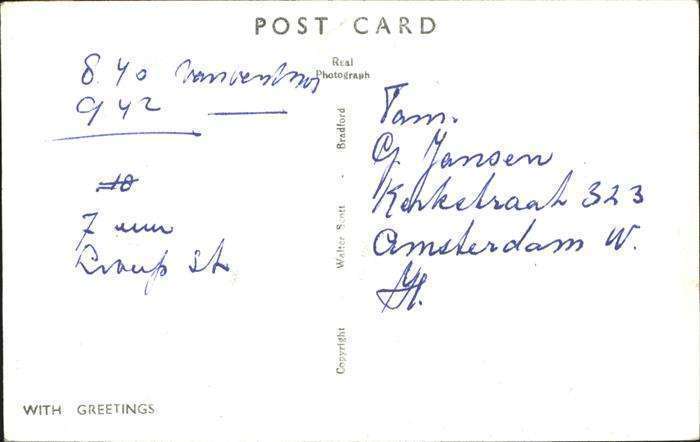 POST CARD
Real
Photograph
8 40
9 42
7 uur
Fam.
G. Jansen
Kerkstraat 323
Amsterdam W.
H.
Copyright Walter Scott - Bradford
WITH GREETINGS